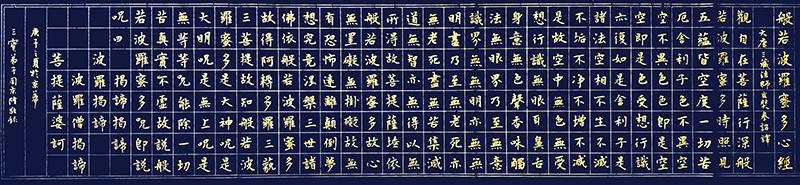 般若波羅蜜多心經
大唐三藏法師玄奘奉詔譯
觀自在菩薩行深般
若波羅蜜多時照見
五蘊皆空度一切苦
厄舍利子色不異空
空不異色色即是空
空即是色受想行識
亦復如是舍利子是
諸法空相不生不滅
不垢不淨不增不減
是故空中無色無受
想行識無眼耳鼻舌
身意無色聲香味觸
法無眼界乃至無意
識界無無明亦無無
明盡乃至無老死亦
無老死盡無苦集滅
道無智亦無得以無
所得故菩提薩埵依
般若波羅蜜多故心
無掛礙無掛礙故無
有恐怖遠離顛倒夢
想究竟涅槃三世諸
佛依般若波羅蜜多
故得阿耨多羅三藐
三菩提故知般若波
羅蜜多是大神咒是
大明咒是無上咒是
無等等咒能除一切
苦真實不虛故說般
若波羅蜜多咒即說
咒曰 揭諦揭諦
波羅揭諦
波羅僧揭諦
菩提薩婆訶
庚子之夏於京華
三寶弟子周京